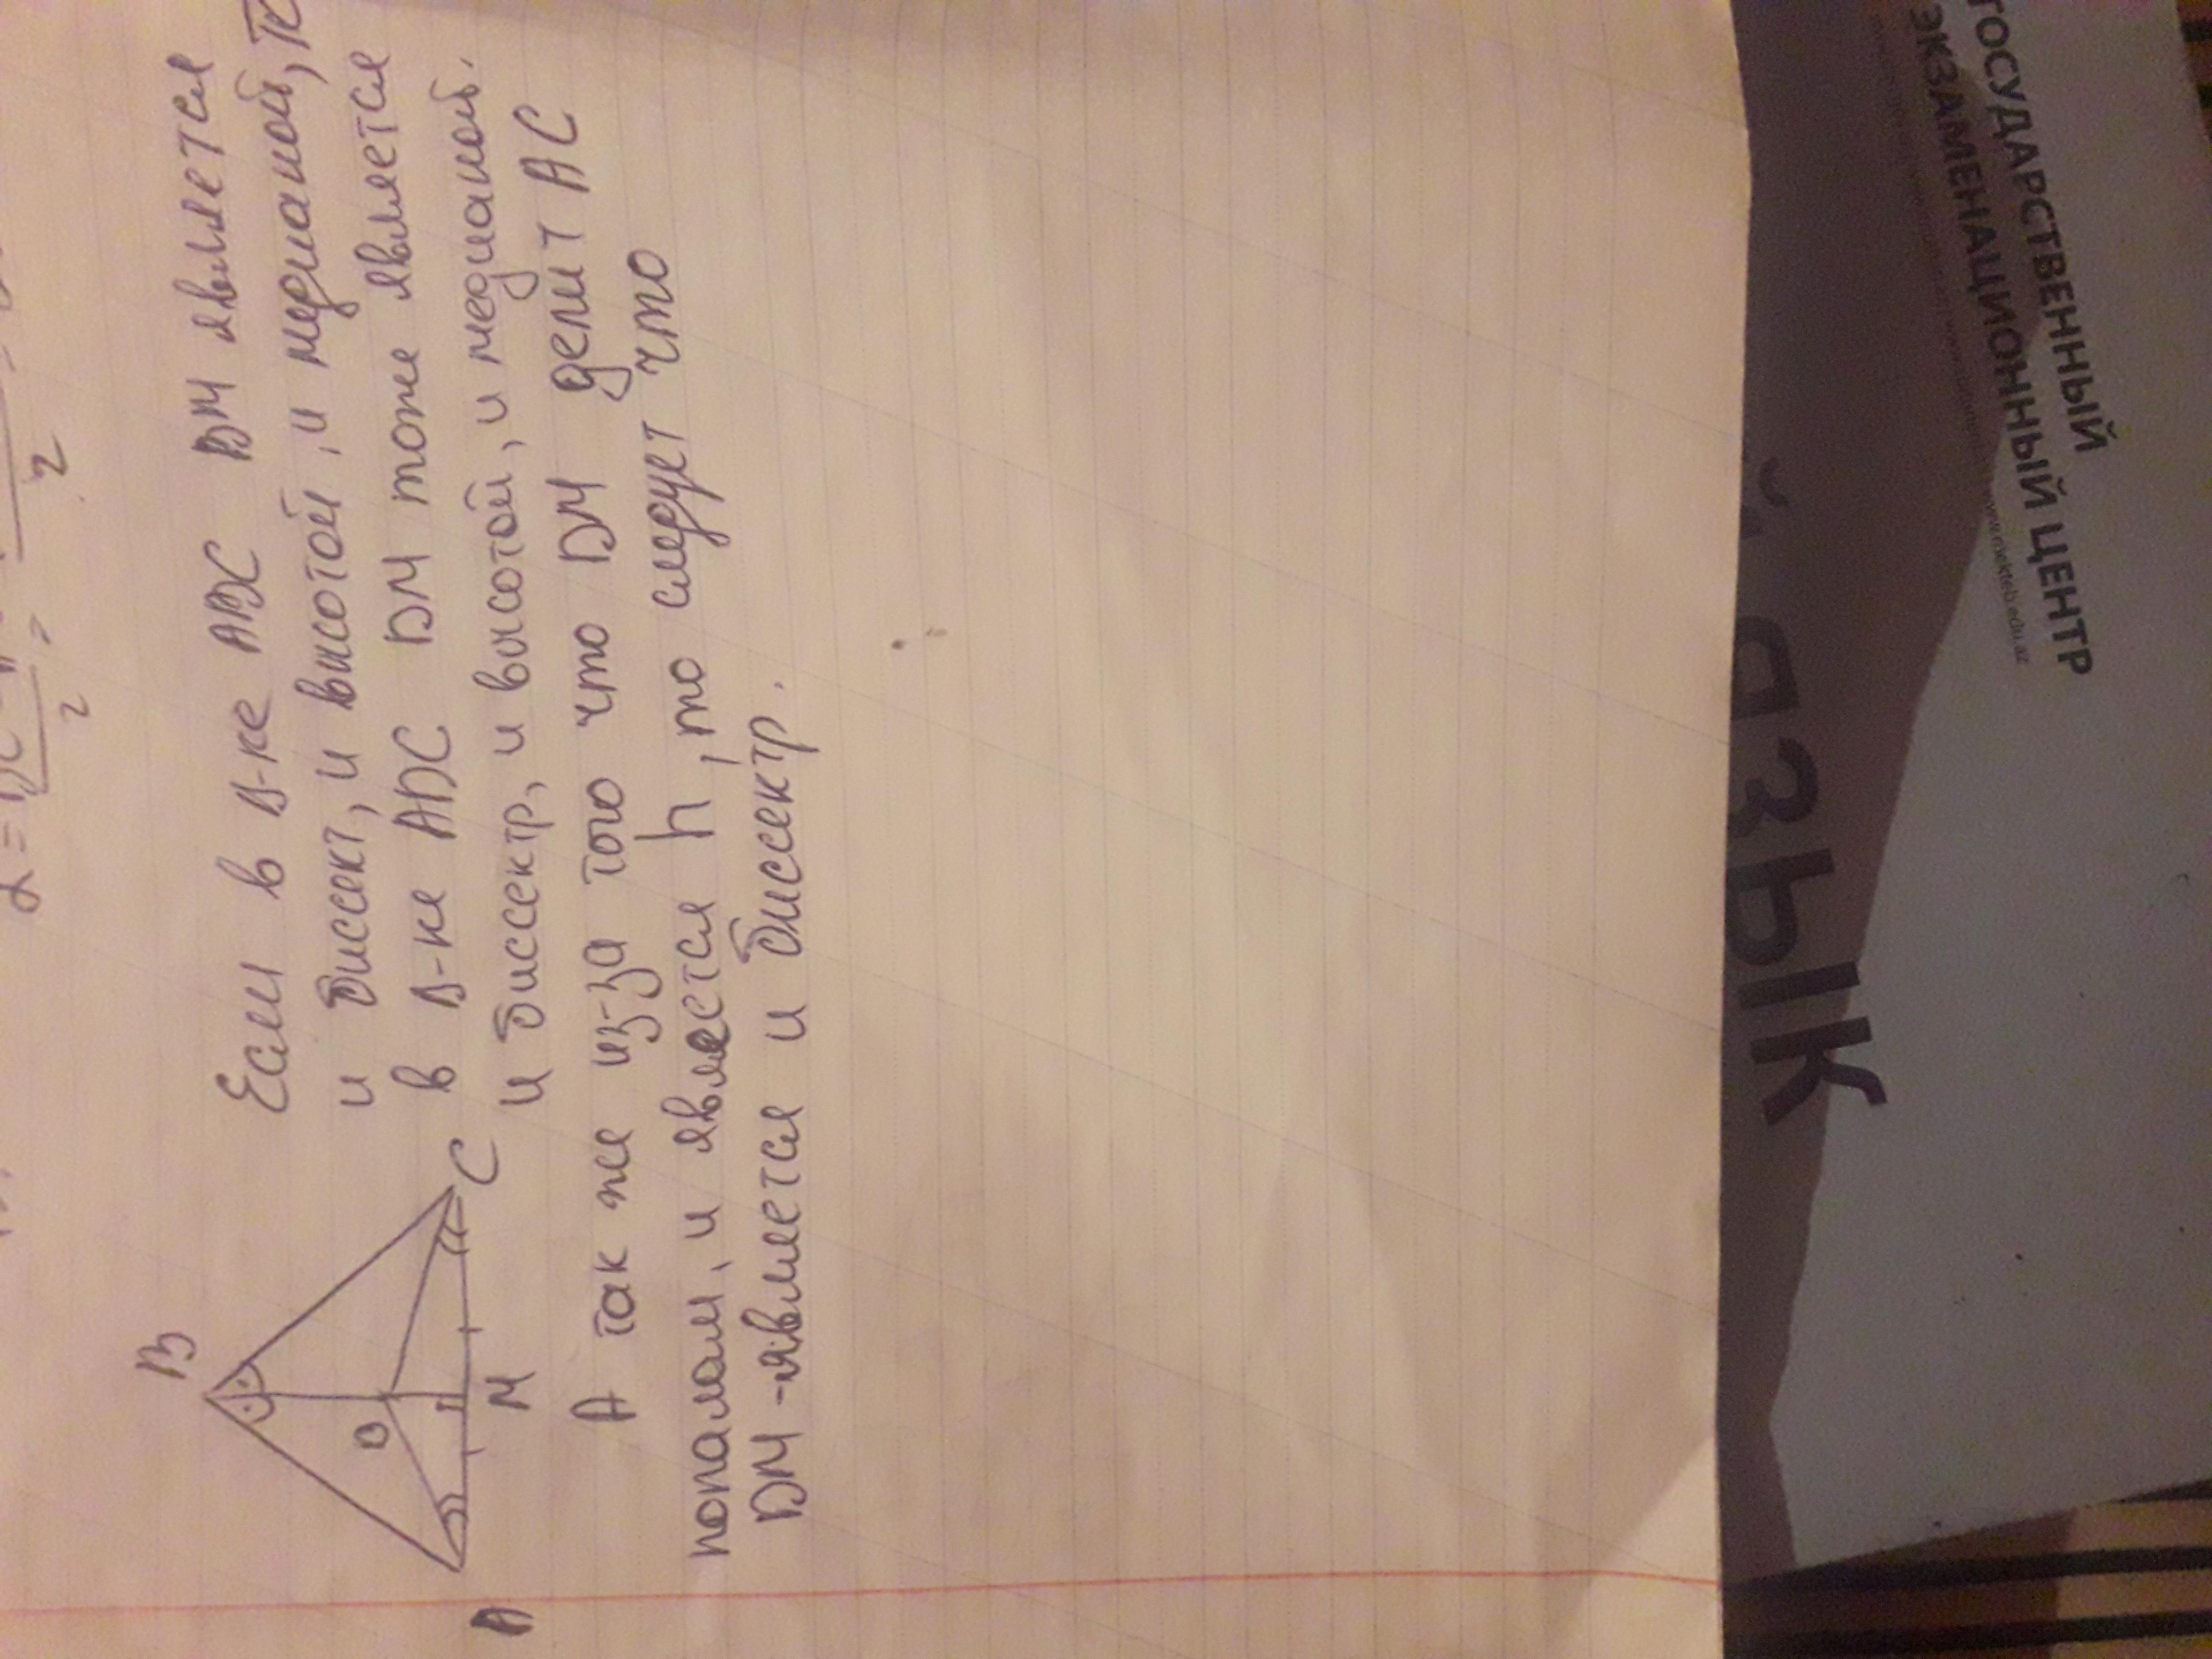 2 = =
2 2
Если в Δ-ке ABC BM является
и биссект, и высотой, и медианой, то
в Δ-ке ADC DM тоже является
и биссектр, и высотой, и медианой.
А так же из-за того что DM делит AC
пополам, и является h, то следует что
DM - является и биссектр.
B
D
A M C
ГОСУДАРСТВЕННЫЙ
ЭКЗАМЕНАЦИОННЫЙ ЦЕНТР
www.mekteb.edu.az
Й ЯЗЫК